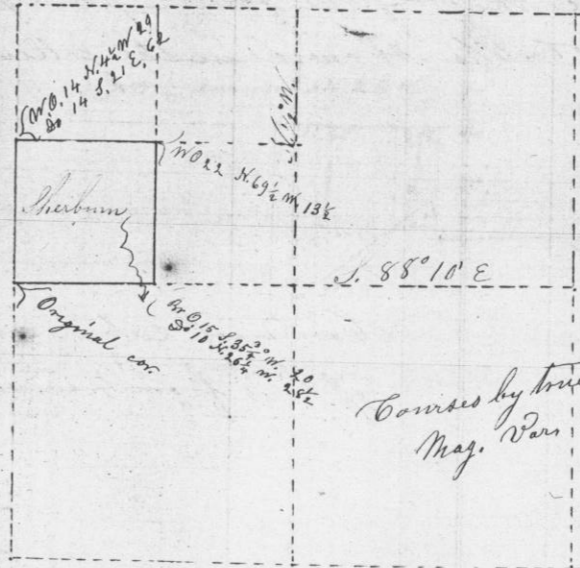 W O. 14 N. 4½ W 29
Do 14 S. 21 E, 62
W O 22 N. 69½ W 13½
Sherburn
S. 88° 10' E
Original cor
Br O 15 S. 35½° W. 20
Do 10 N. 26¼ W. 28½
Courses by true
Mag. Var